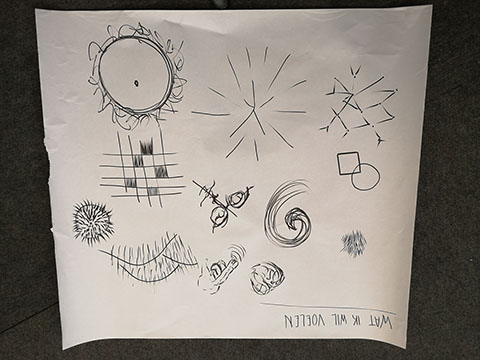 WAT IK WIL VOELEN